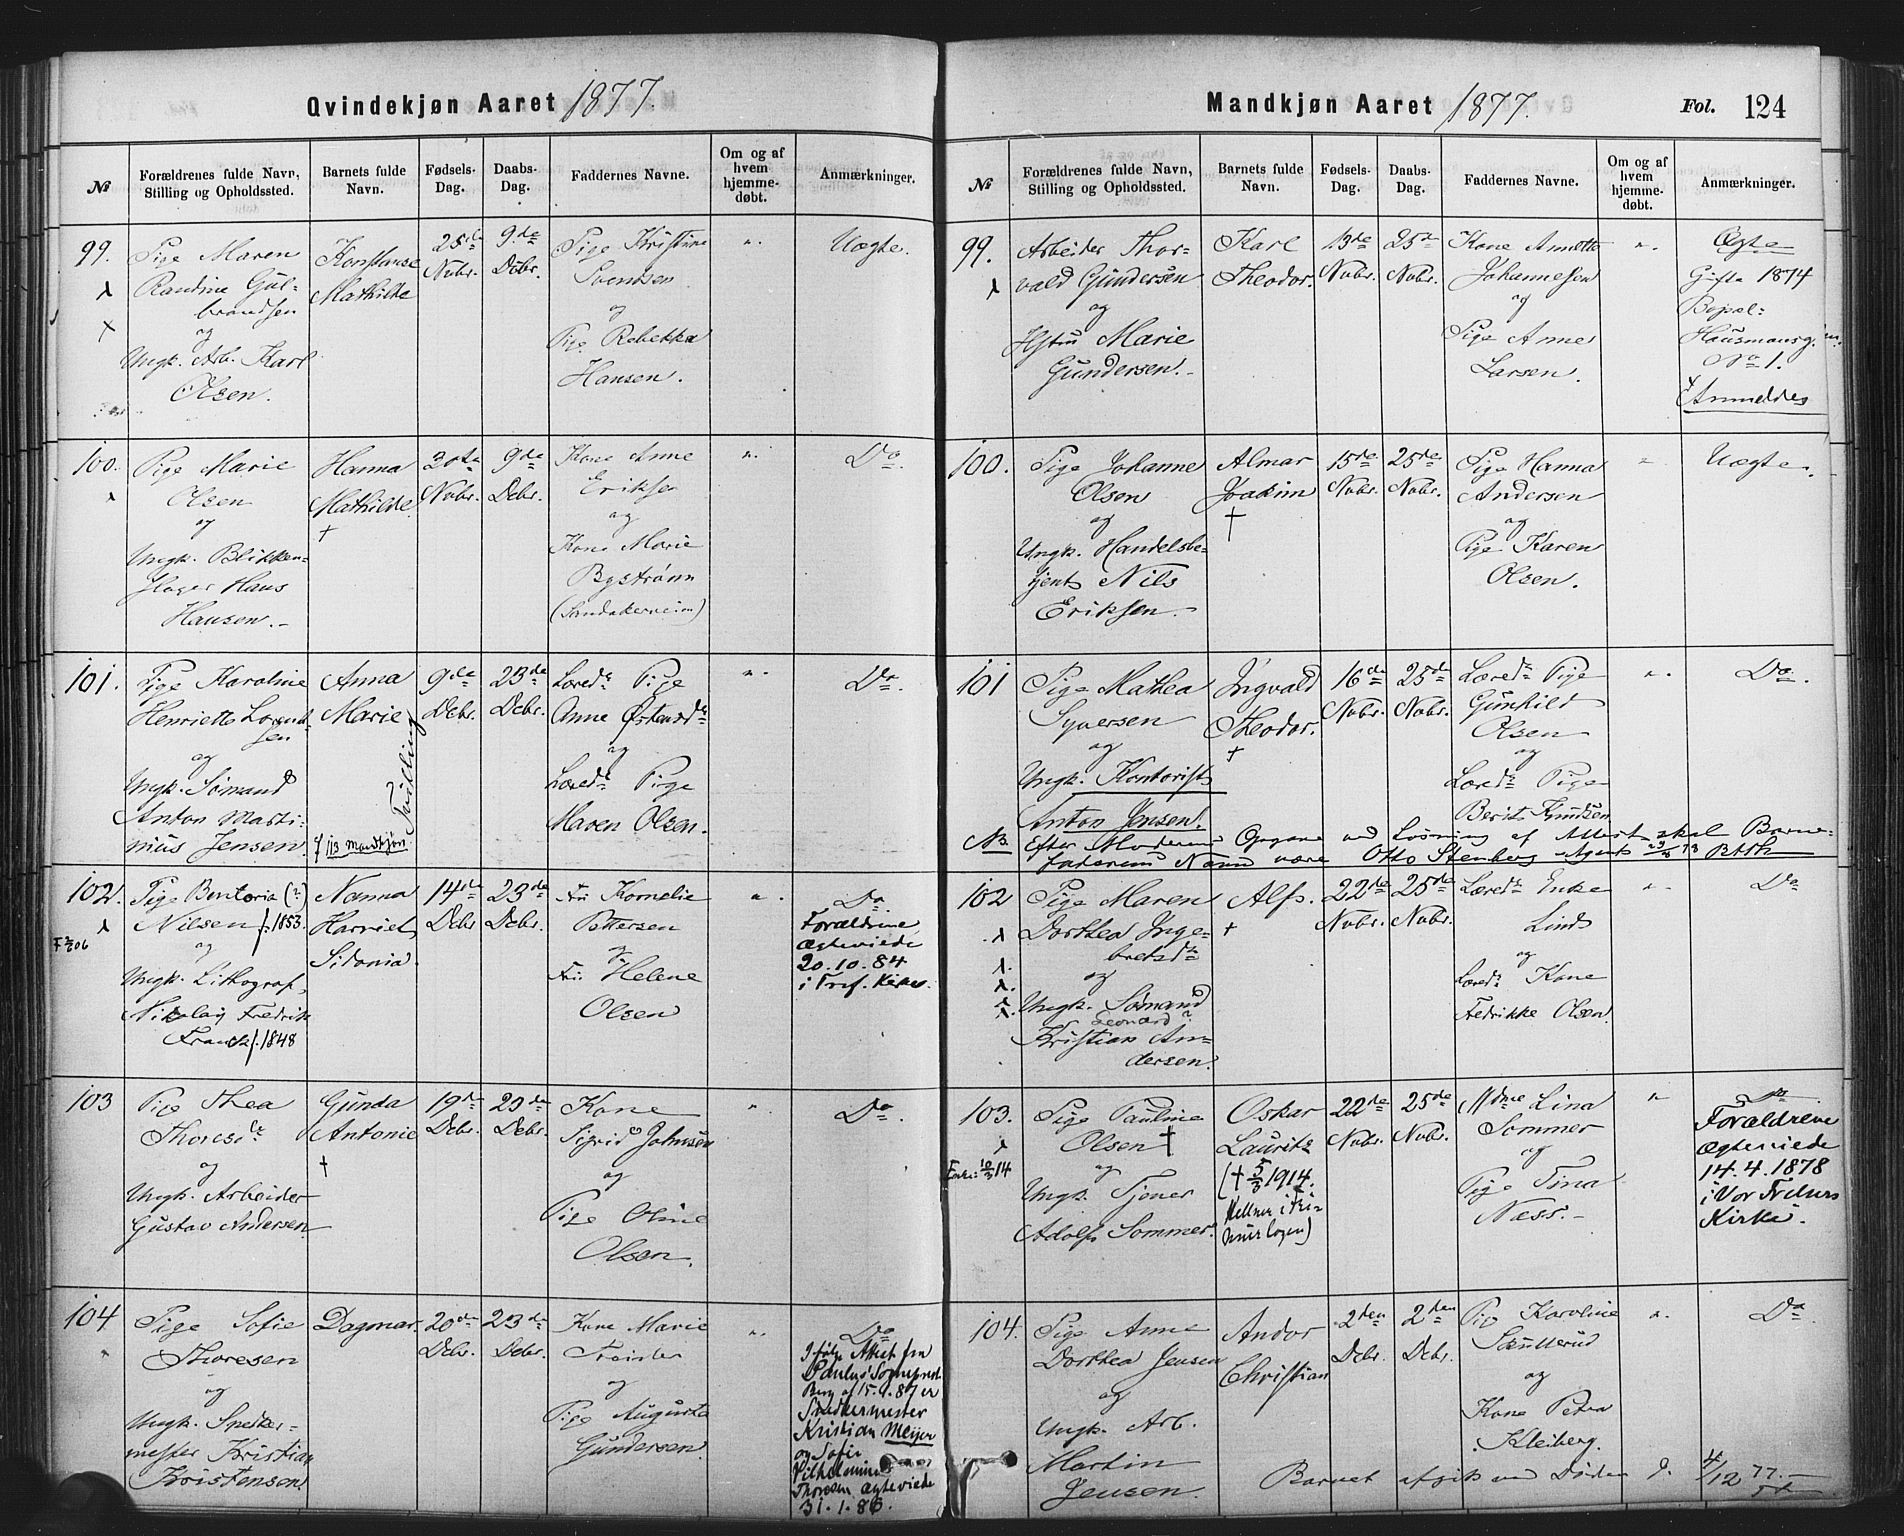 Qvindekjøn Aaret 1877.
№
Forældrenes fulde Navn, Stilling og Opholdssted.
Barnets fulde Navn.
Fødsels-Dag.
Daabs-Dag.
Faddernes Navne.
Om og af hvem hjemme-døbt.
Anmærkninger.
99.
Pige Maren
Randine Gul-
brandsen
og
Ungk. Arb. Karl
Olsen.
Konstanse
Mathilde
25de
Nvbr.
9de
Dcbr.
Pige Kristine
Svendsen
og
Pige Rebekka
Hansen.
".
Uægte.
100.
Pige Marie
Olsen
og
Ungk. Blikken-
slager Hans
Hansen.-
Hanna
Mathilde.
†
30te
Nvbr.
9de
Dcbr.
Kone Anne
Eriksen
og
Kone Marie
Byströnn
(Sandakerveien)
".
Do.
101.
Pige Karoline
Henriette Lorent-
sen
og
Ungk. Sömand
Anton Marti-
nius Jensen.
Anna
Marie
Tvilling
f 113 Mandkjøn.
9de
Dcbr.
23de
Dcbr.
Læred. Pige
Anne Østensd.
og
Læred. Pige
Maren Olsen.
".
Do.
102.
Pige Bentoria (?)
Nilsen f. 1853.
og
Ungk. Lithograf,
Nikolay Fredrik
Franck f. 1848
Nanna
Harriet
Sidonia.
14de
Dcbr.
23de
Dcbr.
Fru Kornelie
Pettersen
og
Fru Helene
Olsen
".
Do
Forældrene
ægteviede
20.10.84
i Tref. Kirke.
103
Pige Thea
Thoresd.
og
Ungk. Arbeider
Gustav Andersen.
Gunda
Antonie
†
19de
Dcbr.
23de
Dcbr.
Kone
Sigrid Johnsen
og
Pige Oline
Olsen.
"
Do.
104
Pige Sofie
Thoresen
og
Ungk. Snedker-
mester Kristian
Kristensen.
Dagmar.
20de
Dcbr.
23de
Dcbr.
Kone Marie
og
Pige Augusta
Gundersen.
".
Do
Ifølge Attest fra
Paulus' Sognepræst
Berg af 15.1.87 er
Snedkermester
Kristian Meijer
og Sofie
Vilhelmine
Thoresen ægteviede
31.1.86.
Mandkjøn Aaret 1877.
Fol. 124
№
Forældrenes fulde Navn, Stilling og Opholdssted.
Barnets fulde Navn.
Fødsels-Dag.
Daabs-Dag.
Faddernes Navne.
Om og af hvem hjemme-døbt.
Anmærkninger.
99.
Arbeider Thor-
vald Gundersen
og
Hstru Marie
Gundersen.-
Karl
Theodor.
13de
Nvbr.
25de
Nvbr.
Kone Annette
Johannessen
og
Pige Anne
Larsen.
".
Ægte
Gifte 1874
Bopæl-
Hausmansg.
No 1.
Anmeldes
100.
Pige Johanne
Olsen
og
Ungk. Handelsbe-
tjent Nils
Eriksen.-
Almar
Joakim
†
15de
Nvbr.
25de
Nvbr.
Pige Hanna
Andersen
og
Pige Karen
Olsen.
"
Uægte.
101
Pige Mathea
Syversen
og
Ungk. Kontorist
Anton Jensen.
Ingvald
Theodor.
†
16de
Nvbr.
25de
Nvbr.
Læred. Pige
Gunhild
Olsen
og
Læred. Pige
Berit Knudsen
".
Do.
NB. Efter Moderens Opgave ved Løsning af Attest skal Barne-
faderens Navn være Otto Stenberg Agent
102
Pige Maren
Dorthea Inge-
bretsd.
og
Ungk. Sömand
Leonard?
Kristian An-
dersen.
Alf.
†
22de
Nvbr.
25de
Nvbr.
Læred. Enke
Lind
og
Læred. Kone
Fredrikke Olsen.
"
Do
103.
Pige Pauline
Olsen †
og
Ungk. Tjener
Adolf Sommer.
Oskar
Laurits
(† 5/3 1914.
Kellner i Fri-
murlogen)
22de
Nvbr.
25de
Nvbr.
Mdme Lina
Sommer
og
Pige Tina
Næss.-
"
Do
Forældrene
ægteviede
14.4.1878
i Vor Frelsers
Kirke.
104.
Pige Anne
Dorthea Jensen
og
Ungk. Arb.
Martin
Jensen.
Andor
Christian
2den
Dcbr.
2den
Dcbr.
Pige Karoline
og
Kone Petra
Kleiberg.
".
Do
Barnet afgik ved Døden d. 4/12 77.